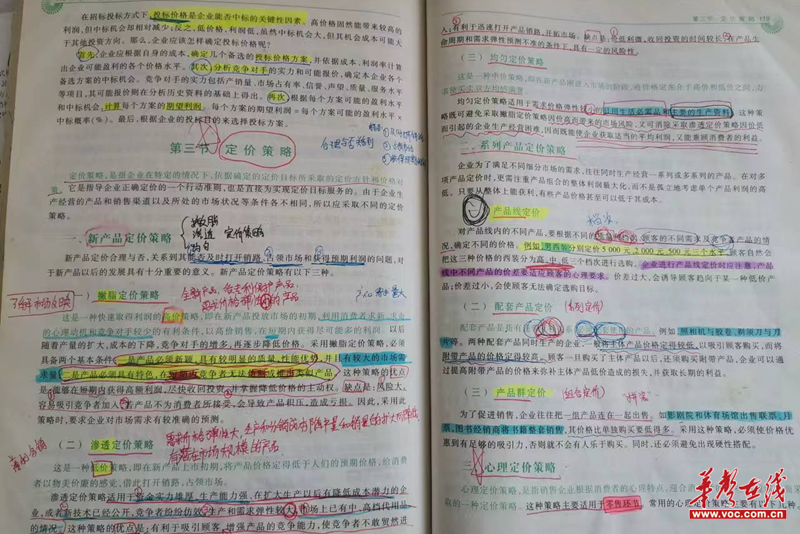 在招标投标方式下,投标价格是企业能否中标的关键性因素。高价格固然能带来较高的
利润,但中标机会却相对减少;反之,低价格,利润低,虽然中标机会大,但其机会成本可能大
于其他投资方向。那么,企业应该怎样确定投标价格呢?
首先,企业应根据自身的成本,确定几个备选的投标价格方案,并依据成本、利润率计算
出企业可能盈利的各个价格水平。其次,分析竞争对手的实力和可能报价,确定本企业各个
备选方案的中标机会。竞争对手的实力包括产销量、市场占有率、信誉、声望、质量、服务水平
等项目,其可能报价则在分析历史资料的基础上得出。再次,根据每个方案可能的盈利水平
和中标机会,计算每个方案的期望利润。每个方案的期望利润=每个方案可能的盈利水平×
中标概率(%)。最后,根据企业的投标目的来选择投标方案。
第三节 定价策略
定价策略,是指企业在特定的情况下,依据确定的定价目标所采取的定价方针和价格对
策。它是指导企业正确定价的一个行动准则,也是直接为实现定价目标服务的。由于企业生
产经营的产品和销售渠道以及所处的市场状况等条件各不相同,所以应采取不同的定价
策略。
一、新产品定价策略
撇脂
渗透 定价策略
新产品定价合理与否,关系到其能否及时打开销路、占领市场和获得预期利润的问题,对
于新产品以后的发展具有十分重要的意义。新产品定价策略有以下三种。
(一)撇脂定价策略
这是一种快速取得利润的高价策略,即在新产品投放市场的初期,利用消费者求新、求奇
的心理动机和竞争对手较少的有利条件,以高价销售,在短期内获得尽可能多的利润。以后
随着产量的扩大,成本的下降,竞争对手的增多,再逐步降低价格。采用撇脂定价策略,必须
具备两个基本条件:一是产品必须新颖,具有较明显的质量、性能优势,并且有较大的市场需
求量;二是产品必须具有特色,在短期内竞争者无法仿制或推出类似产品。这种策略的优点
是:能够在短期内获得高额利润,尽快收回投资,并掌握降低价格的主动权。缺点是:风险大,
容易吸引竞争者加入,若产品不为消费者所接受,会导致产品积压,造成亏损。因此,采用此
策略时,要求企业对市场需求有较准确的预测。
(二)渗透定价策略
这是一种低价策略,即在新产品上市初期,将产品价格定得低于人们的预期价格,给消费
者以物美价廉的感觉,借此打开销路,占领市场。
渗透定价策略适用于资金实力雄厚,生产能力强,在扩大生产以后有降低成本潜力的企
业,或者新技术已经公开,竞争者纷纷仿效,生产和需求弹性较大,市场上已有中、高档代用品
的情况。这种策略的优点是:有利于吸引顾客,增强产品的竞争能力,使竞争者不敢贸然进
第三节 定价策略 119
入;有利于迅速打开产品销路,开拓市场。缺点是:低利微,收回投资的时间较长,在产品生
命周期和需求弹性预测不准的条件下,具有一定的风险性。
(三)均匀定价策略
这是一种中价策略,即在新产品刚进入市场的阶段,将价格定在介于高价和低价之间,力
求使买卖双方均感满意。
均匀定价策略适用于需求价格弹性较小的日用生活必需品和主要的生产资料。这种策
略既可避免采取撇脂定价策略因价高而带来的市场风险,又可消除采取渗透定价策略因价低
而引起的企业生产经营困难,因而既能使企业获取适当的平均利润,又能兼顾消费者的利益。
二、系列产品定价策略
企业为了满足不同细分市场的需求,往往同时生产经营一系列或多系列的产品。在对多
项产品定价时,更需注重产品组合的整体利润最大化,而不是孤立地考虑单个产品利润的高
低。只要从整体上能获利,有些产品价格甚至可以低于其成本。
产品线定价
对产品线内的不同产品,要根据不同的质量和档次、顾客的不同需求及竞争者产品的情
况,确定不同的价格。例如,男西装分别定价5 000元、2 000元、500元三个水平,顾客自然会
把这三种价格的西装分为高、中、低三个档次进行选购。企业进行产品线定价时应注意,产品
线中不同产品的价差要适应顾客的心理要求。价差过大,会诱导顾客趋向于某一种低价产
品;价差过小,会使顾客无法确定选购目标。
(二)配套产品定价
例如,照相机与胶卷、剃须刀与刀
片等。两种配套产品同时生产的企业,一般将主体产品价格定得较低,以吸引顾客购买,而将
附带产品的价格定得较高。顾客一旦购买了主体产品以后,还须购买附带产品,企业可以通
过提高附带产品的价格来弥补主体产品低价造成的损失,并获取长期的利益。
(三)产品群定价 (组合定价)
为了促进销售,企业往往把一组产品连在一起出售。如影剧院和体育场馆出售联票、月
票,图书经销商将书籍整套销售,其价格比单独购买要低得多。采用这种策略,必须使价格优
惠到有足够的吸引力,否则就不会有人乐于购买。同时,还必须避免出现硬性搭配。
三、心理定价策略
心理定价策略,是指销售企业根据消费者的心理特点,迎合消费者的
采取的一种定价策略。这种策略主要适用于零售环节。常用的心理定价策略主要有以下几种。
华声在线
www.voc.com.cn